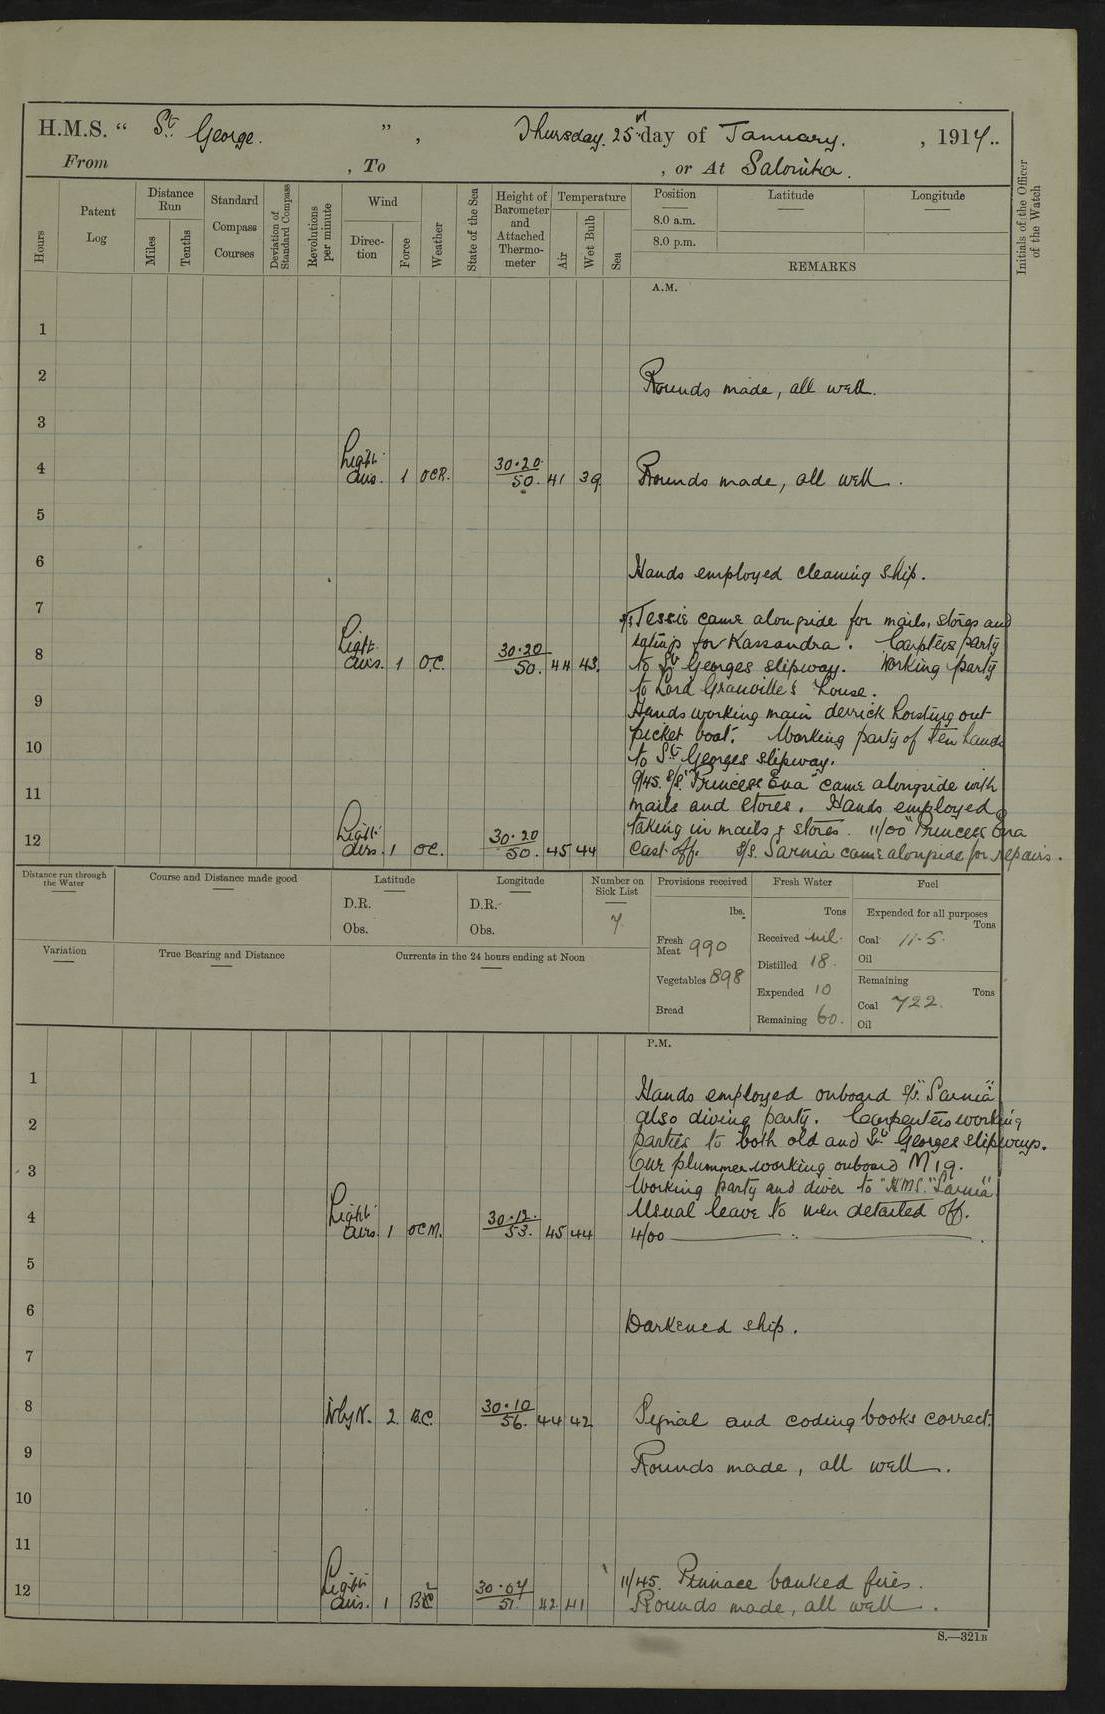 H.M.S. “ St. George. ” , Thursday. 25th day of January. , 1917..
From , To , or At Salonika.
Hours
Patent Log
Distance Run
Miles
Tenths
Standard Compass Courses
Deviation of Standard Compass
Revolutions per minute
Wind
Direction
Force
Weather
State of the Sea
Height of Barometer and Attached Thermometer
Temperature
Air
Wet Bulb
Sea
Position
Latitude
Longitude
8.0 a.m.
8.0 p.m.
REMARKS
Initials of the Officer of the Watch
A.M.
1
2 Rounds made, all well.
3
4 Light airs. 1 OCR. 30.20 50. 41 39 Rounds made, all well.
5
6 Hands employed cleaning ship.
7
S/S Jessie came alongside for mails, stores and
for Kassandra. Carpters party
8 Light airs. 1 OC. 30.20 50. 44 43. to St Georges slipway. Working party
to Lord Granville's house.
9 Hands working main derrick hoisting out
picket boat. Working party of ten hands
10 to St Georges slipway.
9/45. S/S. "Princess Ena" came alongside with
11 mails and stores. Hands employed
taking in mails & stores. 11/00 "Princess Ena
12 Light airs. 1 OC. 30.20 50. 45 44 cast off. S/S. Sarnia came alongside for repairs.
Distance run through the Water
Course and Distance made good
Latitude
D.R.
Obs.
Longitude
D.R.
Obs.
Number on Sick List
7
Provisions received
lbs.
Fresh Meat 990
Vegetables 898
Bread
Fresh Water
Tons
Received nil.
Distilled 18.
Expended 10
Remaining 60.
Fuel
Expended for all purposes
Tons
Coal 11.5.
Oil
Remaining
Tons
Coal 722.
Oil
Variation
True Bearing and Distance
Currents in the 24 hours ending at Noon
P.M.
1 Hands employed onboard S/S. "Sarnia"
2 also diving party. Carpenters working
parties to both old and St Georges slipways.
3 Our plummer working onboard M19.
Working party and diver to "HMS. "Sarnia"
4 Light airs. 1 OCM. 30.12. 53. 45 44 Usual leave to men detailed off.
4/00
5
6 Darkened ship.
7
8 NbyN. 2 B.C. 30.10 56. 44 42 Signal and coding books correct.
9 Rounds made, all well.
10
11
11/45. Pinnace banked fires.
12 Light airs. 1 BC 30.07 51. 42 41 Rounds made, all well.
S.—321B